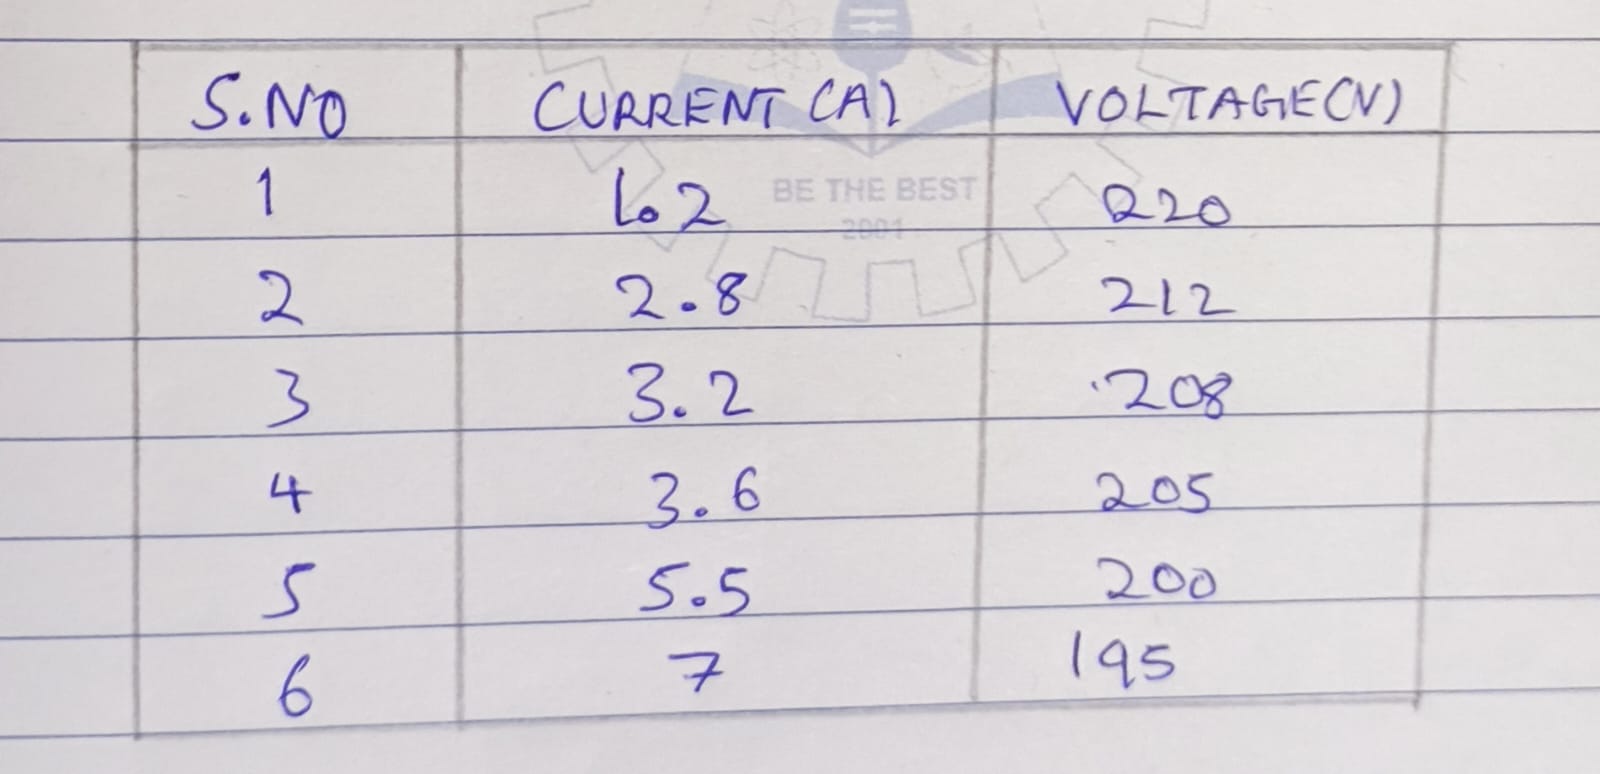 S.NO CURRENT (A) VOLTAGE(V)
1 1.2 220
2 2.8 212
3 3.2 208
4 3.6 205
5 5.5 200
6 7 195
BE THE BEST
2001